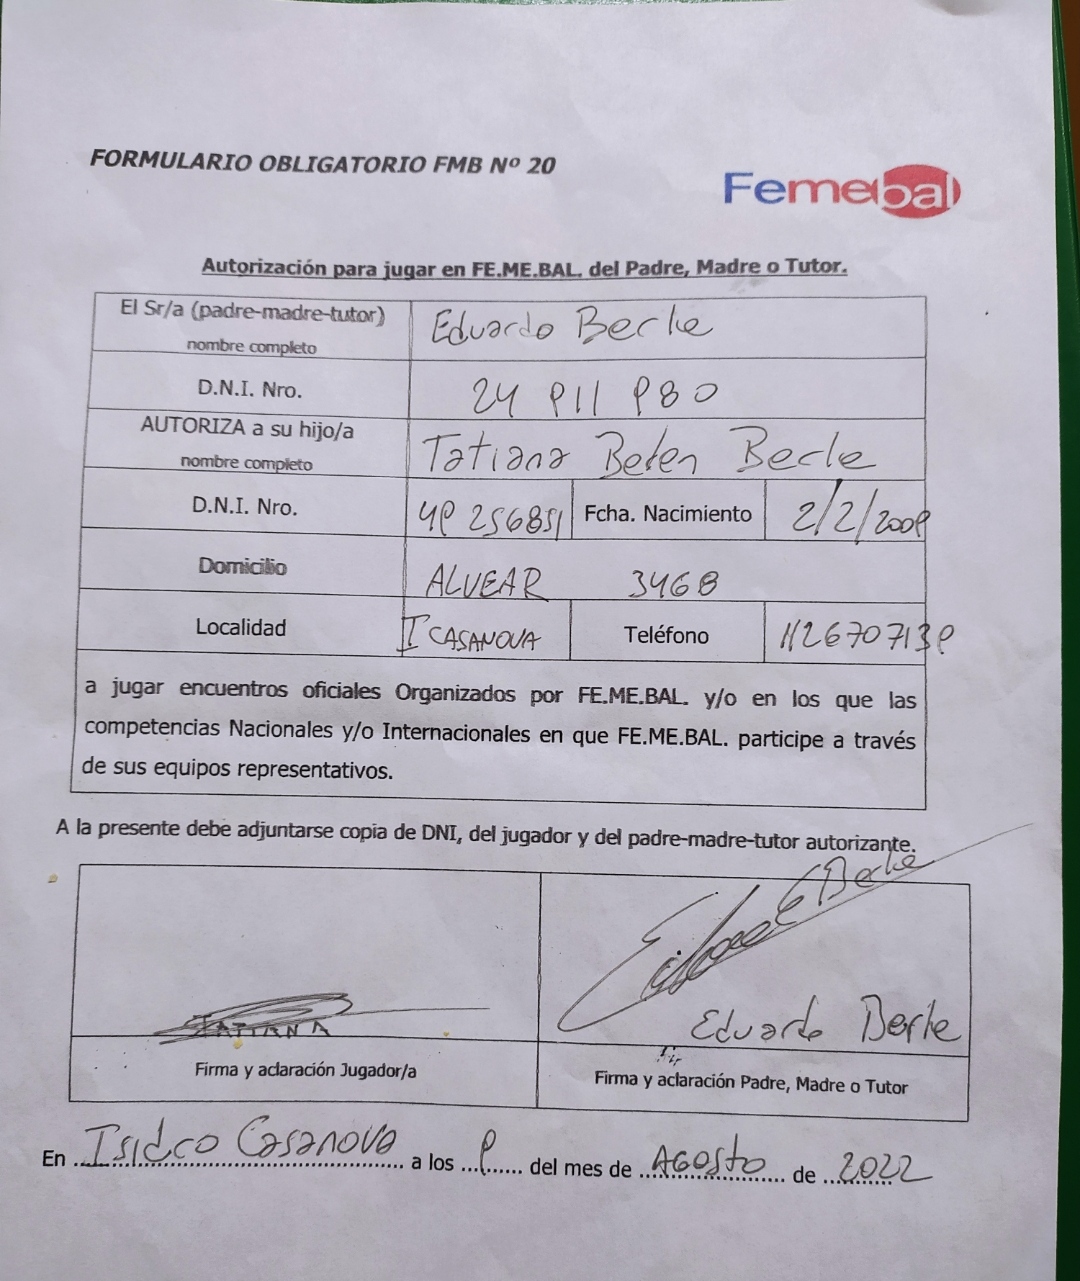 FORMULARIO OBLIGATORIO FMB Nº 20
Femebal
Autorización para jugar en FE.ME.BAL. del Padre, Madre o Tutor.
El Sr/a (padre-madre-tutor)
nombre completo
Eduardo Berke
D.N.I. Nro.
24 911 980
AUTORIZA a su hijo/a
nombre completo
Tatiana Belen Berke
D.N.I. Nro.
49 256851
Fcha. Nacimiento
2/2/2009
Domicilio
ALVEAR 3468
Localidad
I CASANOVA
Teléfono
1126707139
a jugar encuentros oficiales Organizados por FE.ME.BAL. y/o en los que las
competencias Nacionales y/o Internacionales en que FE.ME.BAL. participe a través
de sus equipos representativos.
A la presente debe adjuntarse copia de DNI, del jugador y del padre-madre-tutor autorizante.
E Berke
TATIANA
Eduardo Berke
Firma y aclaración Jugador/a
Firma y aclaración Padre, Madre o Tutor
En Isidro Casanova a los 9 del mes de AGOSTO de 2022